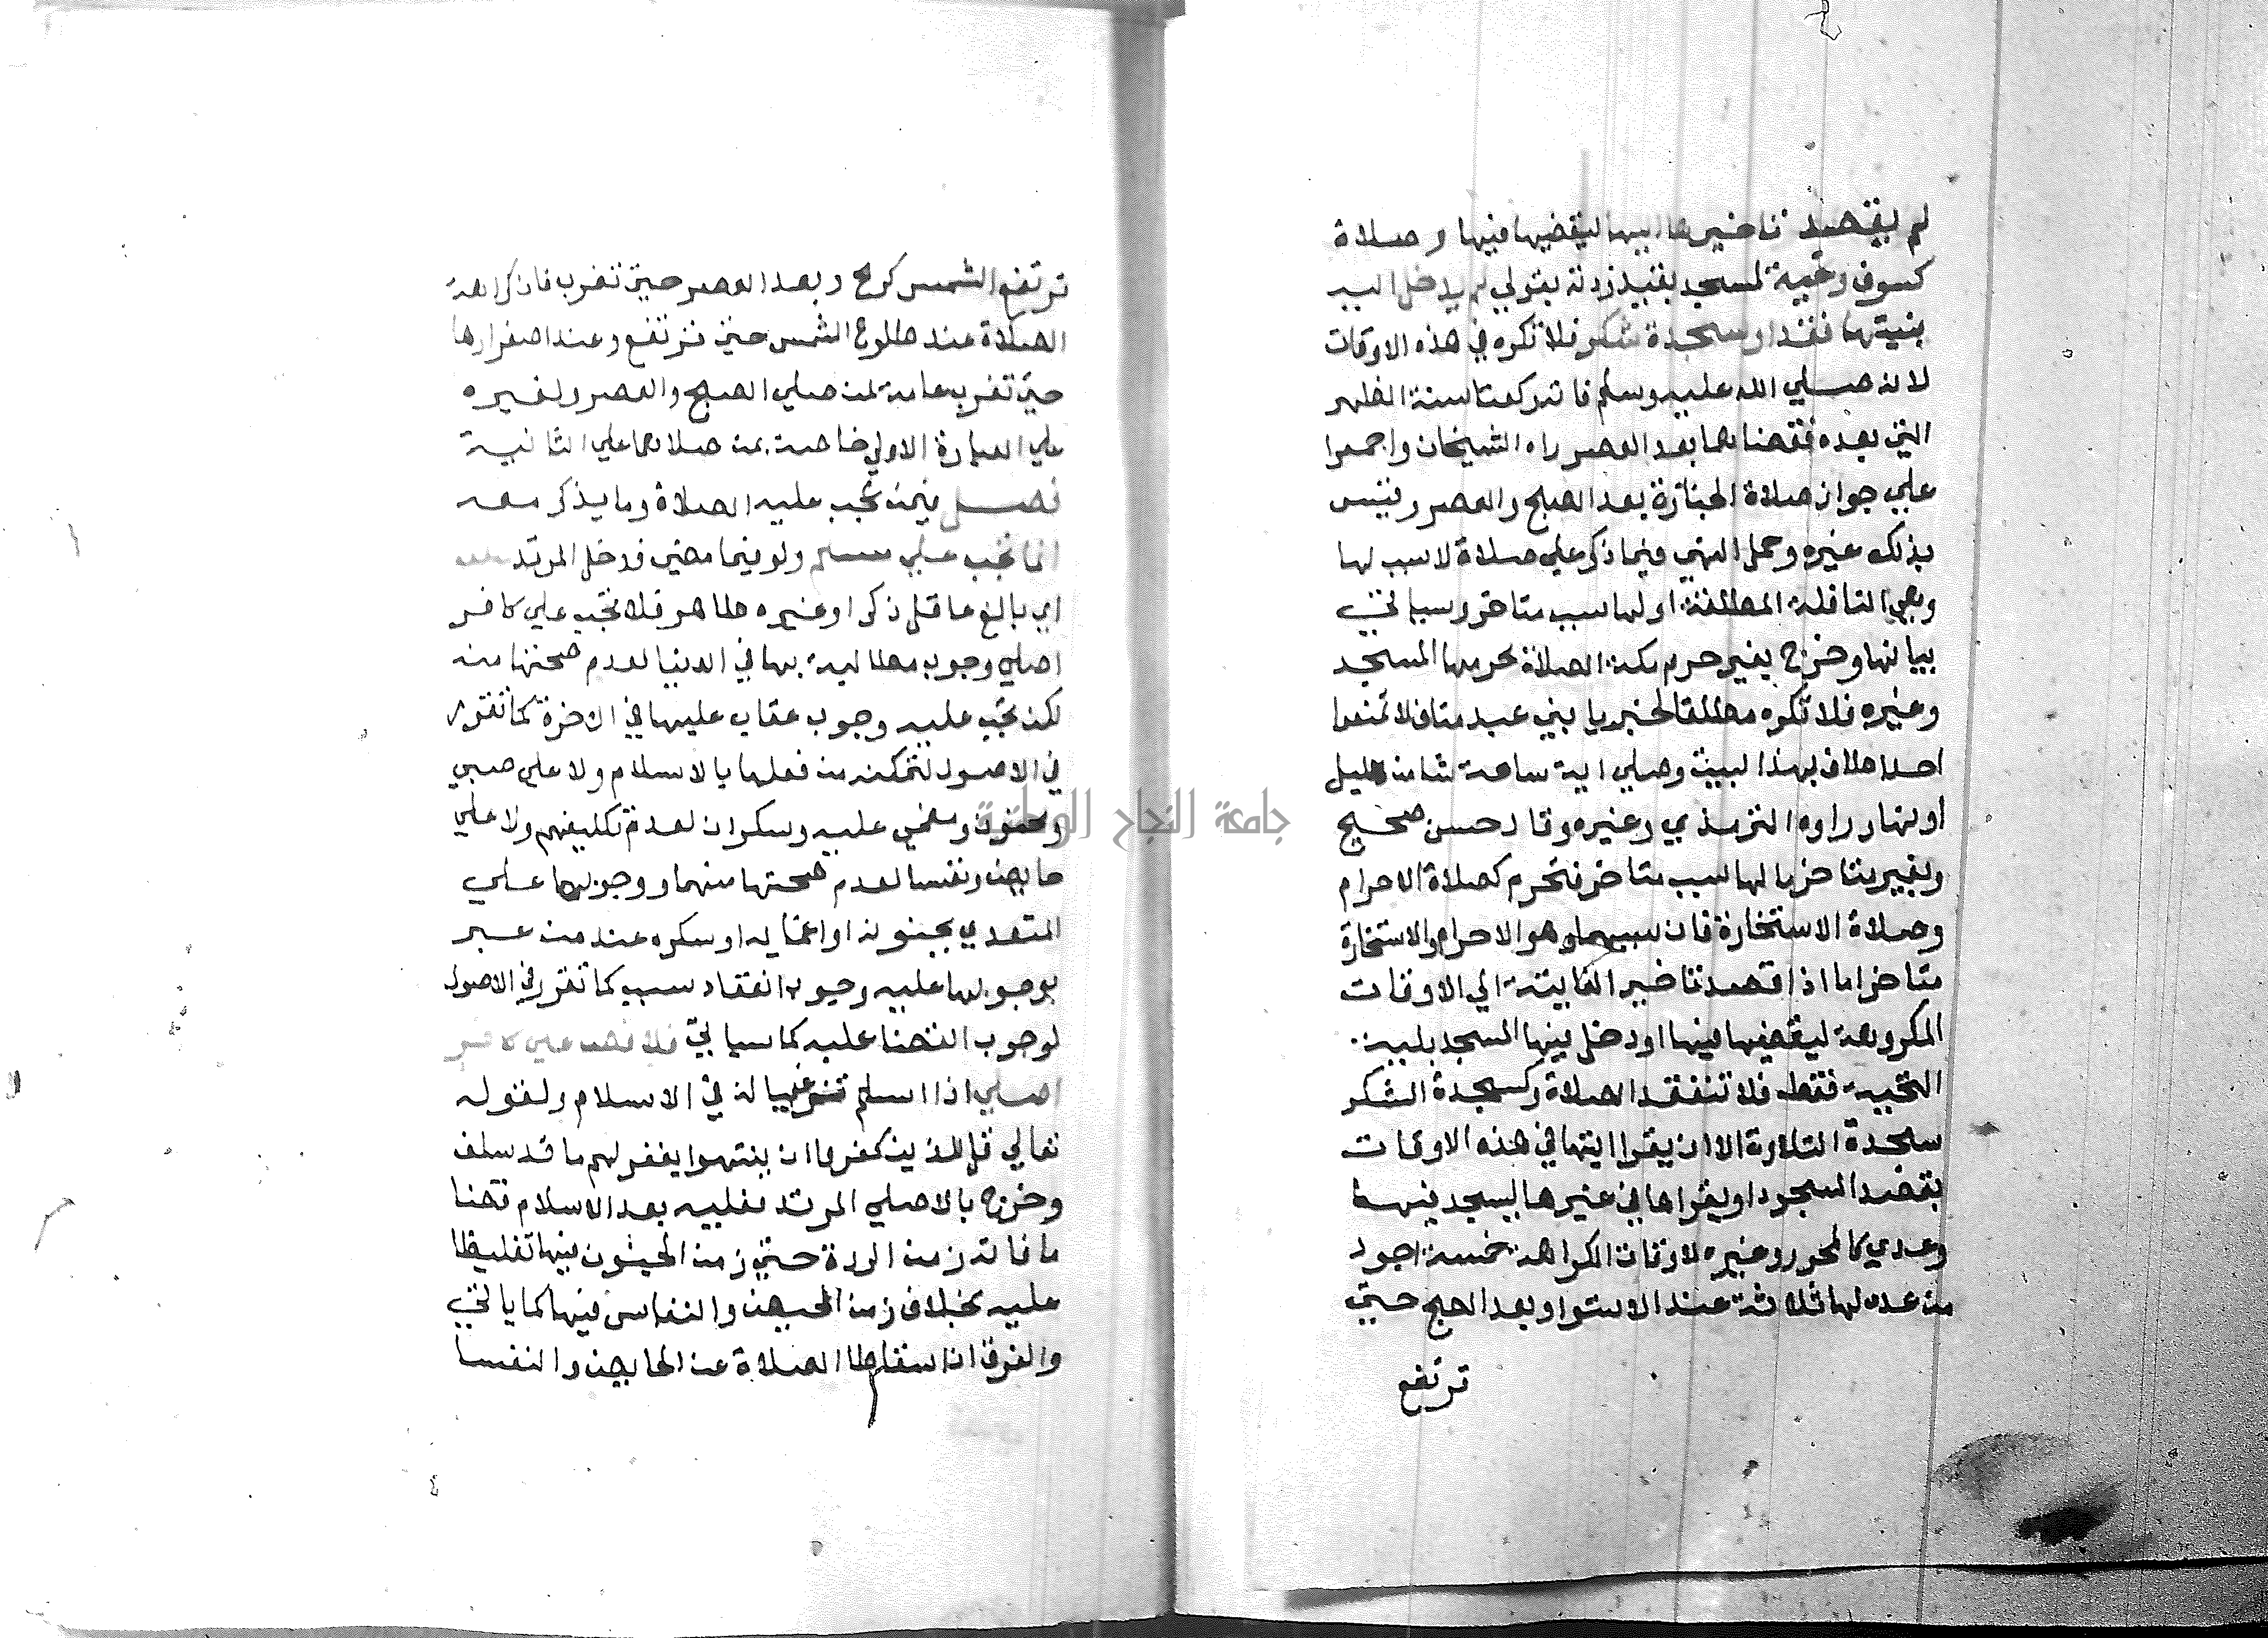 لم يقصد تاخيرها اليها ليقضيها فيها وصلاة
كسوف وتحية لمسجد بقيد زدته بقولي لم يدخل اليه
بنيتها فقط وسجدة شكر فلا تكره في هذه الاوقات
لانه صلي الله عليه وسلم فاته ركعتا سنة الظهر
التي بعده فقضاهما بعد العصر راه الشيخان واجمعوا
علي جواز صلاة الجنازة بعد الصبح والعصر وقيس
بذلك غيره وحمل النهي فيما ذكر علي صلاة لا سبب لها
وهي النافلة المطلقة او لها سبب متاخر وسياتي
بيانها وخرج بغير حرم مكة الصلاة بحرمها المسجد
وغيره فلا تكره مطلقا لخبر يا بني عبد مناف لا تمنعوا
احدا طاف بهذا البيت وصلي اية ساعة شا من ليل
او نهار راوه الترمذي وغيره وقال حسن صحيح
وبغير متاخر ما لها سبب متاخر فتحرم كصلاة الاحرام
وصلاة الاستخارة فان سببهما وهو الاحرام والاستخارة
متاخر اما اذا قصد تاخير الفايتة الي الاوقات
المكروهة ليقضيها فيها او دخل فيها المسجد بنية
التحية فقط فلا تنعقد الصلاة وكسجدة الشكر
سجدة التلاوة الا ان يقرا ايتها في هذه الاوقات
بقصد السجود او يقراها في غيرها ليسجد فيها
وعدي كالمحرر وغيره لاوقات الكراهة خمسة اجود
من عده لها ثلاثة عند الاستوا وبعد الصبح حتي
ترتفع
ترتفع الشمس كرمح وبعد العصر حتي تغرب فان كراهة
الصلاة عند طلوع الشمس حتي ترتفع وعند اصفرارها
حتي تغرب عامة لمن صلي الصبح والعصر ولغيره
علي العبارة الاولي خاصة بمن صلاهما علي الثانية
فصل فيمن تجب عليه الصلاة وما يذكر معه
انما تجب علي مسلم ولو فيما مضي فدخل المرتد
اي بالغ عاقل ذكر او غيره طاهر فلا تجب علي كافر
اصلي وجوب مطالبة بها في الدنيا لعدم صحتها منه
لكن تجب عليه وجوب عقاب عليها في الاخرة كما تقرر
في الاصول لتمكنه من فعلها بالاسلام ولا علي صبي
ومجنون ومغمي عليه وسكران لعدم تكليفهم ولا علي
حايض ونفسا لعدم صحتها منهما ووجوبها علي
المتعدي بجنونه او اغمايه او سكره عند من عبر
بوجوبها عليه وجوب انعقاد سبب كما تقرر في الاصول
لوجوب القضا عليه كما سياتي فلا قضا علي كافر
اصلي اذا اسلم ترغيبا له في الاسلام ولقوله
تعالي قل للذين كفروا ان ينتهوا يغفر لهم ما قد سلف
وخرج بالاصلي المرتد فعليه بعد الاسلام قضا
ما فاته زمن الردة حتي زمن الجنون فيها تغليظا
عليه بخلاف زمن الحيض والنفاس فيها كما ياتي
والفرق ان اسقاط الصلاة عن الحايض والنفسا
جامعة النجاح الوطنية